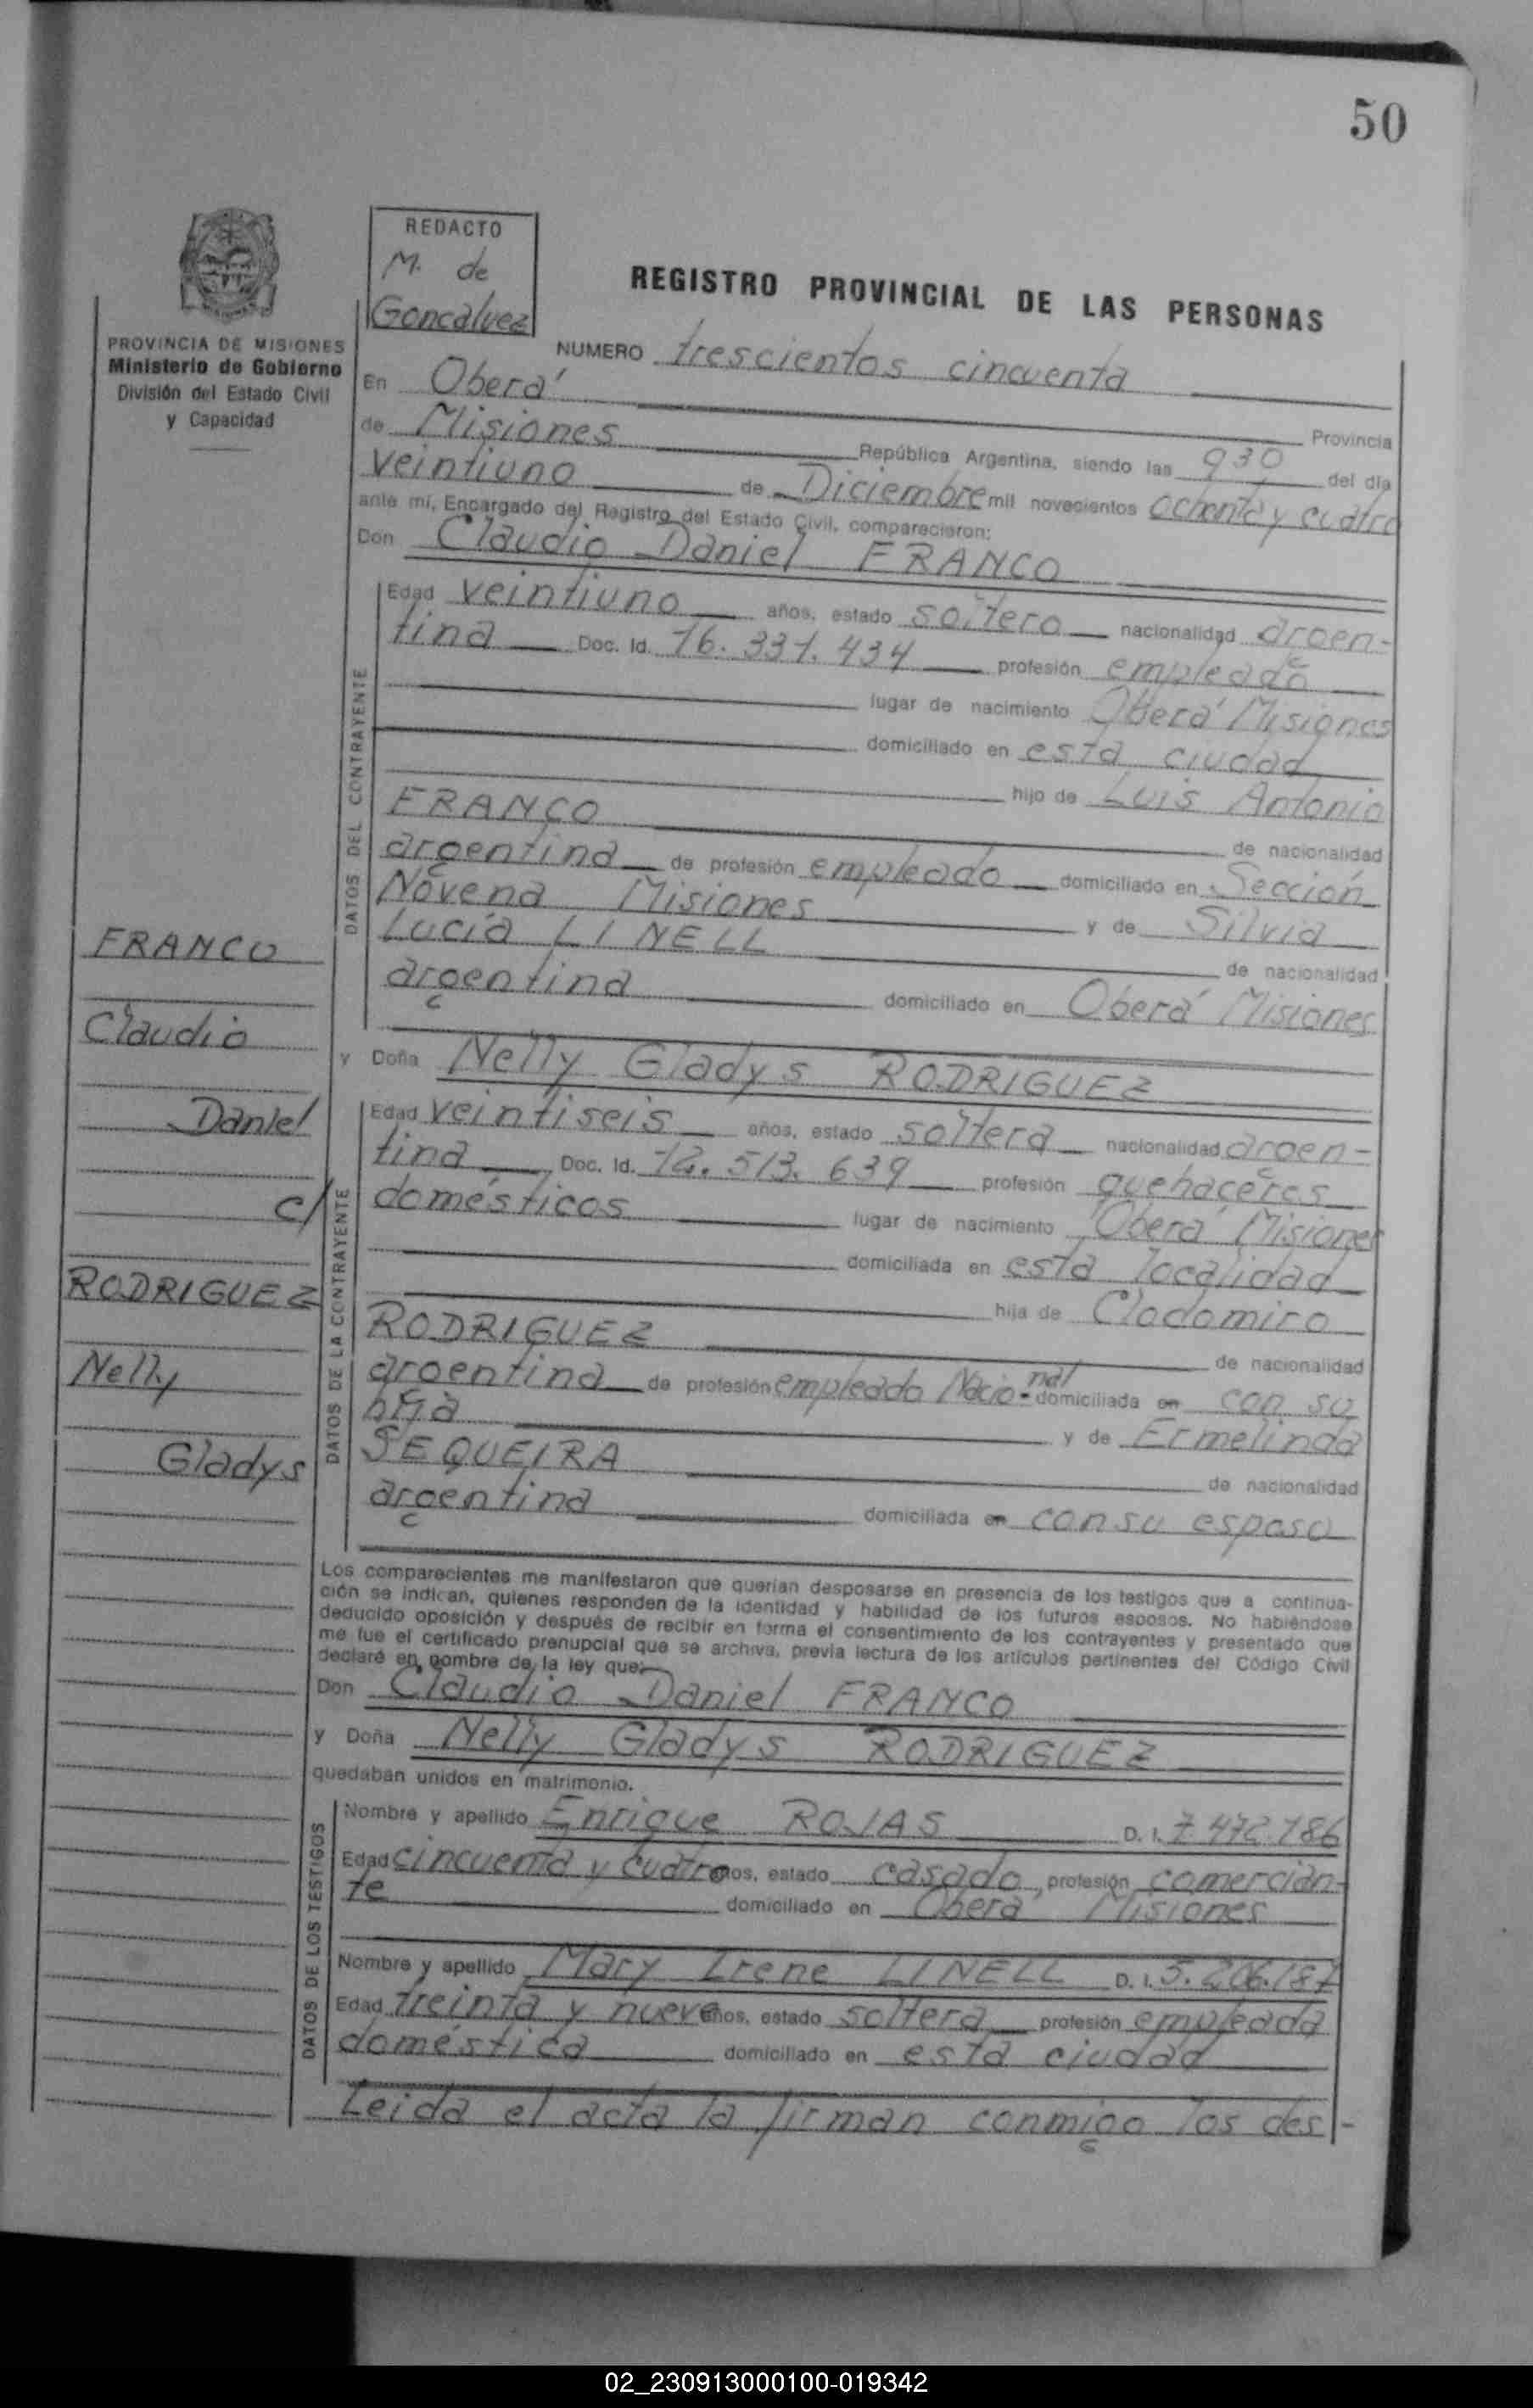 50
REDACTO
M. de
Goncalvez
REGISTRO PROVINCIAL DE LAS PERSONAS
PROVINCIA DE MISIONES
Ministerio de Gobierno
División del Estado Civil
y Capacidad
NUMERO trescientos cincuenta
En Oberá Provincia
de Misiones República Argentina, siendo las 930 del día
veintiuno de Diciembre mil novecientos ochenta y cuatro
ante mí, Encargado del Registro del Estado Civil, comparecieron:
Don Claudio Daniel FRANCO
DATOS DEL CONTRAYENTE
Edad veintiuno años, estado soltero nacionalidad argen-
tina Doc. Id. 16.331.434 profesión empleado
lugar de nacimiento Oberá Misiones
domiciliado en esta ciudad
hijo de Luis Antonio
FRANCO de nacionalidad
argentina de profesión empleado domiciliado en Sección
Novena Misiones y de Silvia
Lucía LINELL de nacionalidad
argentina domiciliado en Oberá Misiones
y Doña Nelly Gladys RODRIGUEZ
DATOS DE LA CONTRAYENTE
Edad veintiseis años, estado soltera nacionalidad argen-
tina Doc. Id. 12.513.639 profesión quehaceres
domésticos lugar de nacimiento Oberá Misiones
domiciliada en esta localidad
hija de Clodomiro
RODRIGUEZ de nacionalidad
argentina de profesión empleado Nacional domiciliada en con su
hija y de Ermelinda
SEQUEIRA de nacionalidad
argentina domiciliada en con su esposo
FRANCO
Claudio
Daniel
c/
RODRIGUEZ
Nelly
Gladys
Los comparecientes me manifestaron que querían desposarse en presencia de los testigos que a continua-
ción se indican, quienes responden de la identidad y habilidad de los futuros esposos. No habiéndose
deducido oposición y después de recibir en forma el consentimiento de los contrayentes y presentado que
me fue el certificado prenupcial que se archiva, previa lectura de los artículos pertinentes del Código Civil
declaré en nombre de la ley que:
Don Claudio Daniel FRANCO
y Doña Nelly Gladys RODRIGUEZ
quedaban unidos en matrimonio.
DATOS DE LOS TESTIGOS
Nombre y apellido Enrique ROJAS D. I. 7.472.186
Edad cincuenta y cuatro años, estado casado, profesión comercian-
te domiciliado en Oberá Misiones
Nombre y apellido Mary Irene LINELL D. I. 5.206.187
Edad treinta y nueve años, estado soltera profesión empleada
doméstica domiciliado en esta ciudad
Leida el acta la firman conmigo los des-
02_230913000100-019342